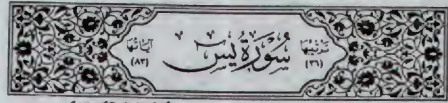 ترتيبها سُورَةُ يسٓ آياتها
(٣٦) (٨٣)